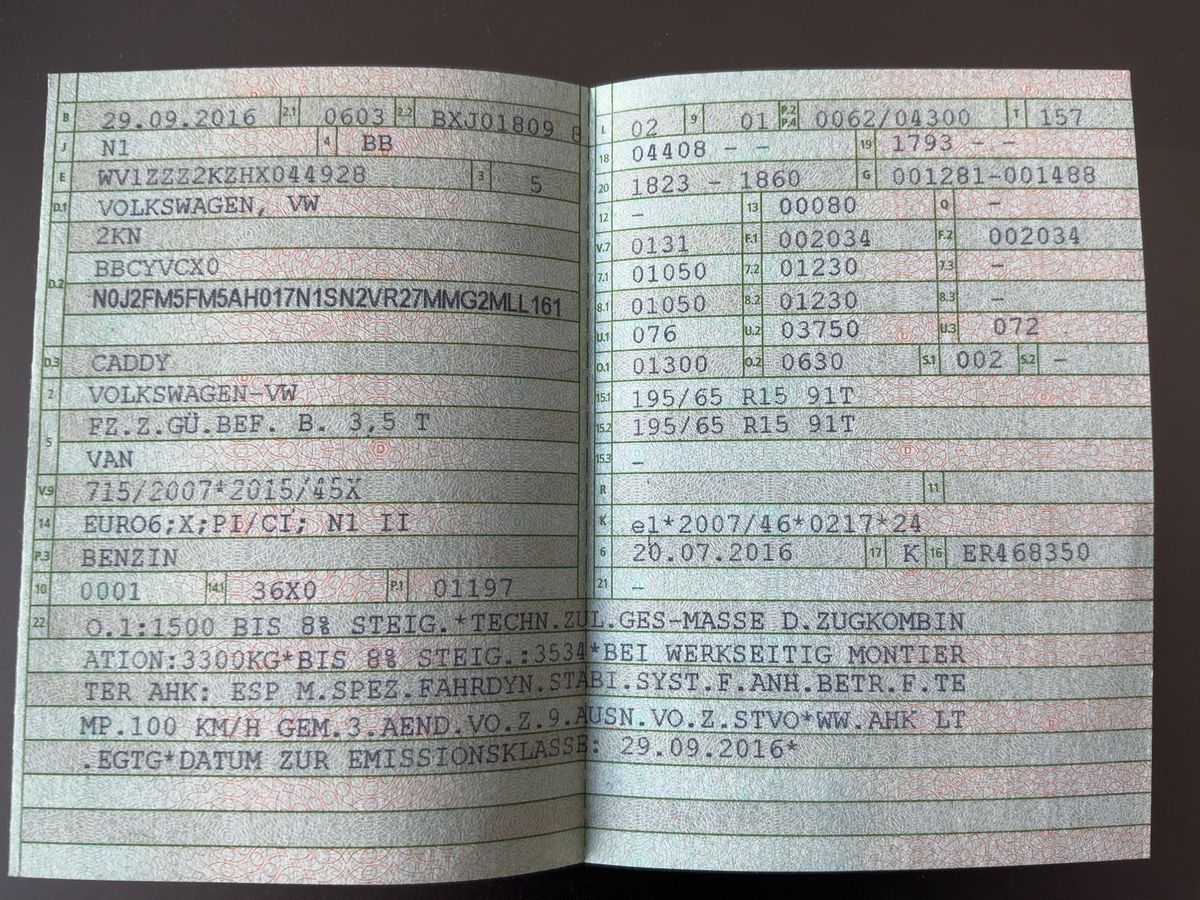 B 29.09.2016 2.1 0603 2.2 BXJ01809 8
J N1 4 BB
E WV1ZZZ2KZHX044928 3 5
D.1 VOLKSWAGEN, VW
2KN
D.2 BBCYVCX0
N0J2FM5FM5AH017N1SN2VR27MMG2MLL161
D.3 CADDY
2 VOLKSWAGEN-VW
5 FZ.Z.GÜ.BEF. B. 3,5 T
VAN
V.9 715/2007*2015/45X
14 EURO6;X;PI/CI; N1 II
P.3 BENZIN
10 0001 14.1 36X0 P.1 01197
L 02 9 01 P.2 P.4 0062/04300 T 157
18 04408 - - 19 1793 - -
20 1823 - 1860 G 001281-001488
12 - 13 00080 Q -
V.7 0131 F.1 002034 F.2 002034
7.1 01050 7.2 01230 7.3 -
8.1 01050 8.2 01230 8.3 -
U.1 076 U.2 03750 U.3 072
O.1 01300 O.2 0630 S.1 002 S.2 -
15.1 195/65 R15 91T
15.2 195/65 R15 91T
15.3 -
R 11
K e1*2007/46*0217*24
6 20.07.2016 17 K 16 ER468350
21 -
22 O.1:1500 BIS 8% STEIG.*TECHN.ZUL.GES-MASSE D.ZUGKOMBIN
ATION:3300KG*BIS 8% STEIG.:3534*BEI WERKSEITIG MONTIER
TER AHK: ESP M.SPEZ.FAHRDYN.STABI.SYST.F.ANH.BETR.F.TE
MP.100 KM/H GEM.3.AEND.VO.Z.9.AUSN.VO.Z.STVO*WW.AHK LT
.EGTG*DATUM ZUR EMISSIONSKLASSE: 29.09.2016*